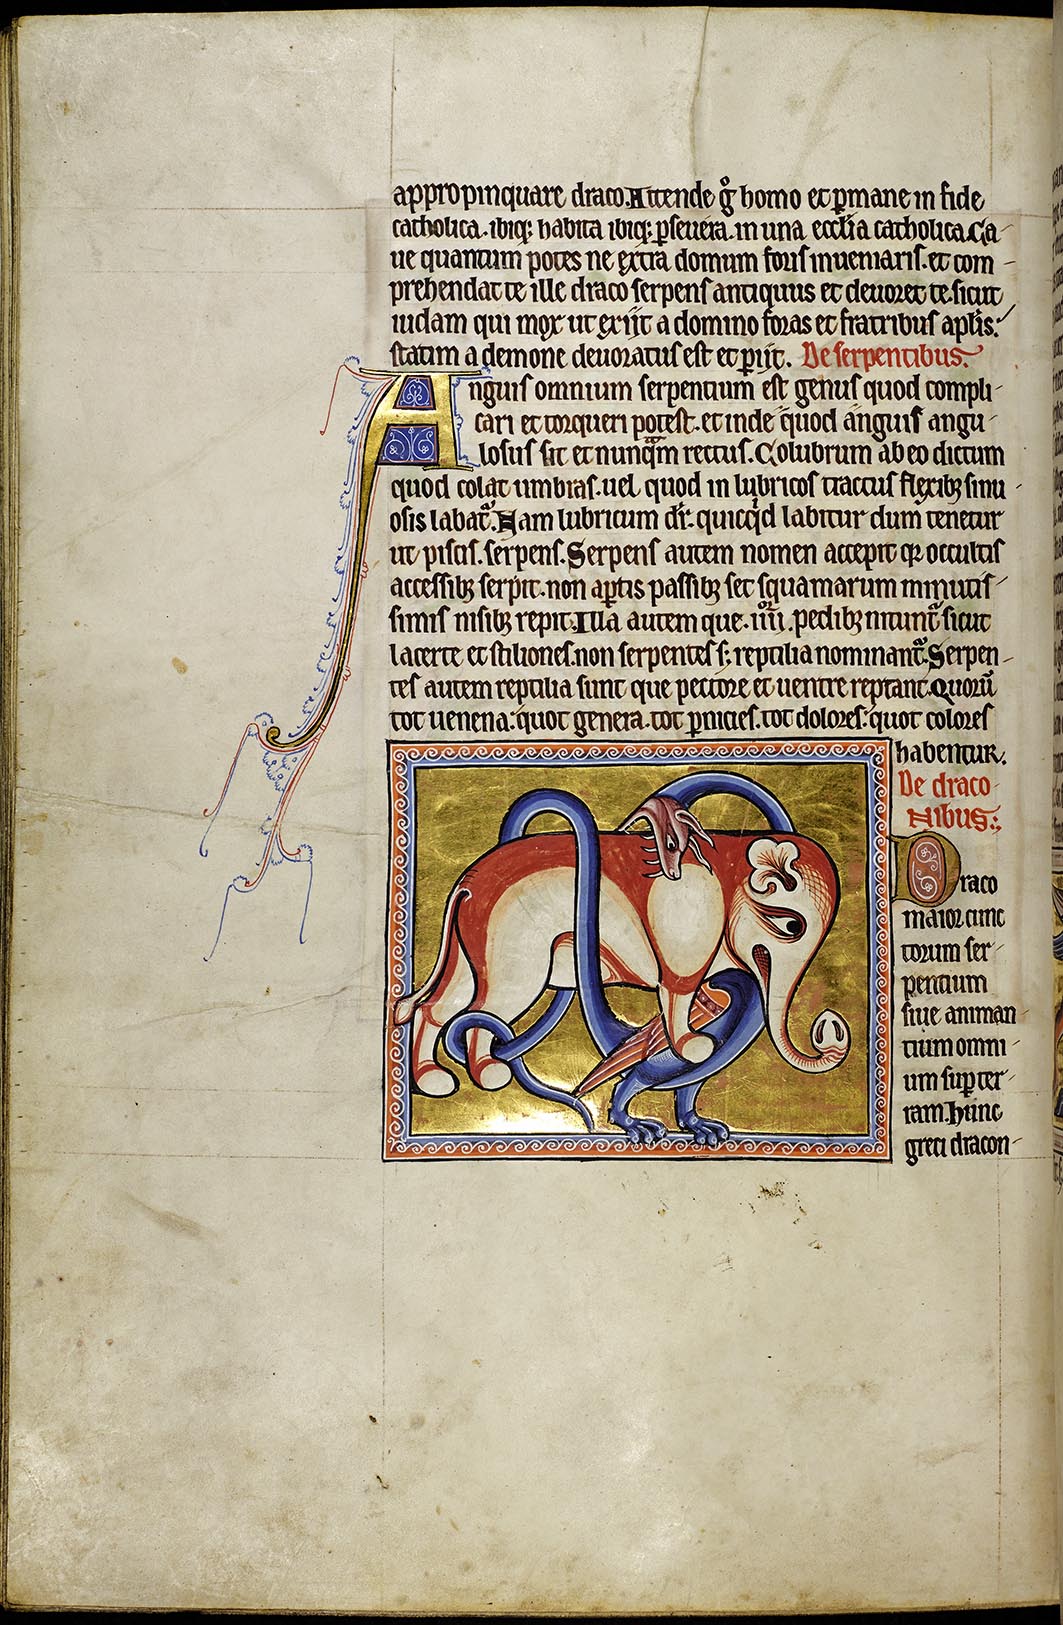 appropinquare draco. Attende g̊ homo et ꝑmane in fide
catholica. ibiq; habita ibiq; ꝑseuera in una ecclīa catholica. Ca-
ue quantum potes ne extra domum foris inueniaris. et com-
prehendat te ille draco serpens antiquus et deuoret te. sicut
iudam qui mox ut exiit a domino foras et fratribus aplīs.
statim a demone deuoratus est et ꝑiit. De serpentibus.
Anguis omnium serpentium est genus quod compli-
cari et torqueri potest. et inde quod anguis angu-
losus sit et nunq̄m rectus. Colubrum ab eo dictum
quod colat umbras. uel quod in lubricos tractus flexibꝫ sinu-
osis labat᷑. Nam lubricum dr̄. quicq̍d labitur dum tenetur
ut piscis. serpens. Serpens autem nomen accepit qꝛ occultis
accessibꝫ serpit. non aꝑtis passibꝫ set squamarum minutis-
simis nisibꝫ repit. Illa autem que .iiii. pedibꝫ nitunt᷑ sicut
lacerte et stiliones. non serpentes s; reptilia nominant᷑. Serpen-
tes autem reptilia sunt que pectore et uentre reptant. Quorū
tot uenena: quot genera. tot ꝑnicies. tot dolores: quot colores
habentur.
De draco-
nibus:
Draco
maior cunc
torum ser-
pentium
siue animan-
tium omni-
um suꝑ ter-
ram. Hunc
greci dracon-